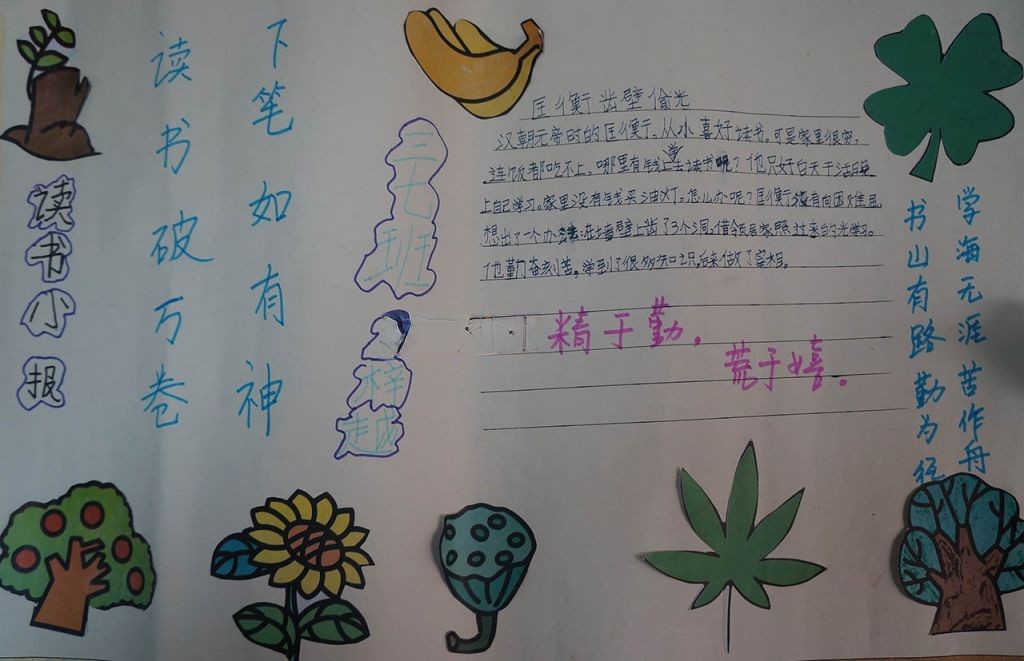 读书小报
读书破万卷
下笔如有神
三七班
梓越
匡衡凿壁偷光
汉朝元帝时的匡衡,从小喜好读书。可是家里很穷,
连饭都吃不上,哪里有钱上学去读书呢?他只好白天干活晚
上自己学习。家里没有钱买油灯。怎么办呢?匡衡没有向困难
想出了一个办法:在墙壁上凿了3个洞,借邻居家照过来的光学习。
他勤奋刻苦,学到了很多知识,后来做了宰相。
精于勤,
荒于嬉。
书山有路勤为径
学海无涯苦作舟